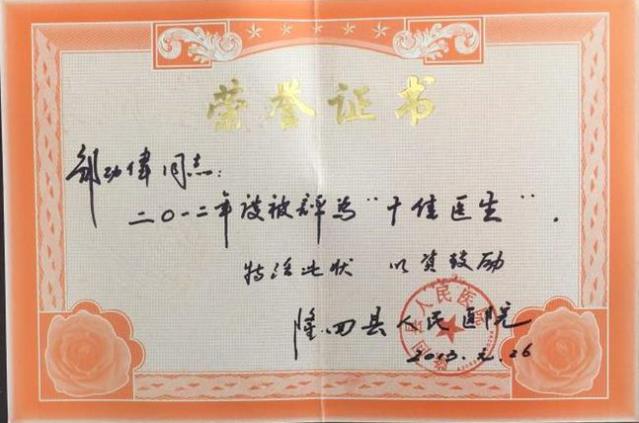 荣誉证书
邹功伟同志:
二〇一二年度被评为"十佳医生".
特活此状 以资鼓励
隆回县人民医院
2013.元.26